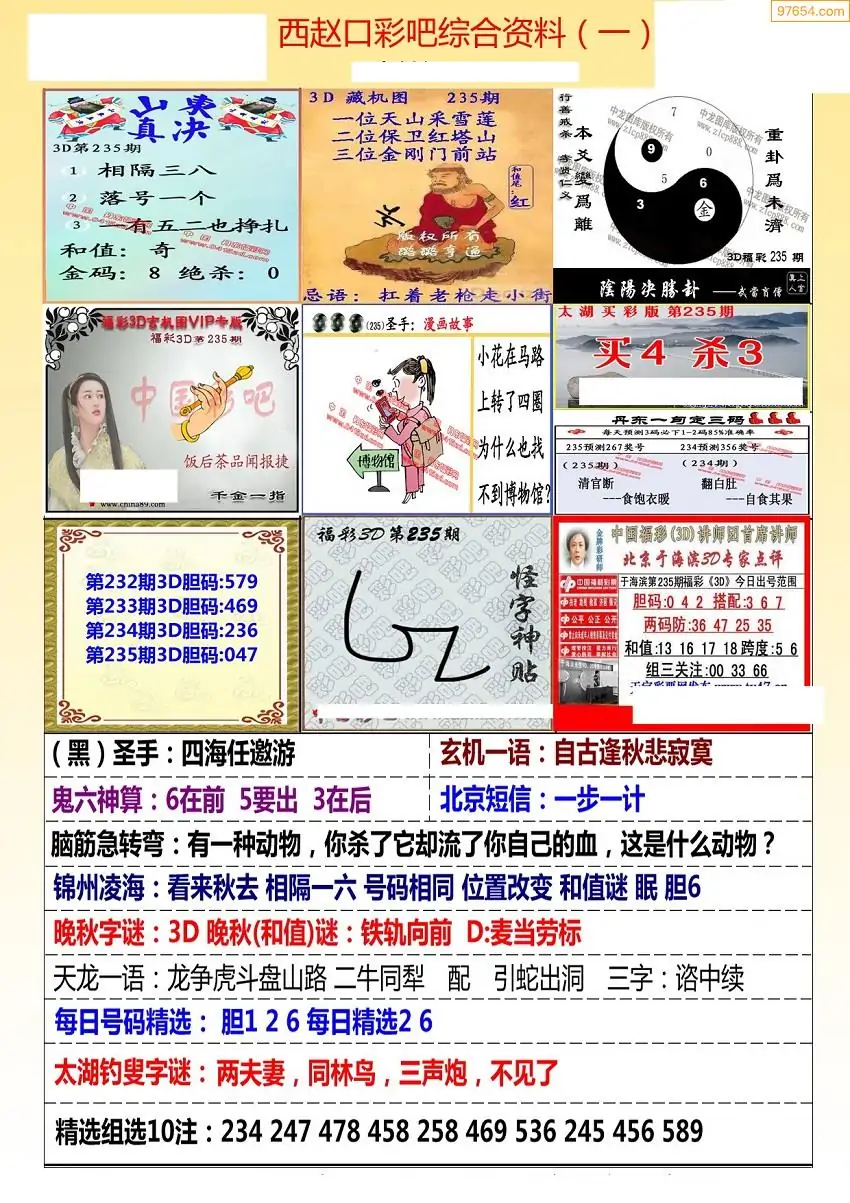 97654.com
西赵口彩吧综合资料（一）
山东
真决
3D第235期
1 相隔三八
2 落号一个
3 一有五二也挣扎
和值：奇
金码：8 绝杀：0
3D 藏机图 235期
一位天山采雪莲
二位保卫红塔山
三位金刚门前站
和值尾：红
版权所有
璐璐亨通
忌语：扛着老枪走小街
行善戒杀
本爻變爲離
重卦爲未濟
7
9
0
5
6
3
金
中龙图库版权所有
www.zlcp888.com
3D福彩 235 期
陰陽决勝卦 ——武當肖僧
福彩3D玄机图VIP专版
福彩3D第235期
中国彩吧
饭后茶品闻报捷
千金一指
www.china89.com
(235)圣手：漫画故事
小花在马路
上转了四圈
为什么也找
不到博物馆?
博物馆
太湖买彩版 第235期
买4 杀3
丹东一句定三码
每天预测3码必下1-2码85%准确率
235预测267奖号 234预测356奖号
(235期) (234期)
清官断 翻白肚
---食饱衣暖 ---自食其果
第232期3D胆码:579
第233期3D胆码:469
第234期3D胆码:236
第235期3D胆码:047
福彩3D第235期
怪字神贴
金牌彩研师
中国福彩(3D)讲师团首席讲师
北京于海滨3D专家点评
中国福利彩票
于海滨第235期福彩《3D》今日出号范围
胆码:0 4 2 搭配:3 6 7
两码防:36 47 25 35
公平 公正 公开
和值:13 16 17 18 跨度:5 6
组三关注:00 33 66
（黑）圣手：四海任邀游
玄机一语：自古逢秋悲寂寞
鬼六神算：6在前 5要出 3在后
北京短信：一步一计
脑筋急转弯：有一种动物，你杀了它却流了你自己的血，这是什么动物？
锦州凌海：看来秋去 相隔一六 号码相同 位置改变 和值谜 眠 胆6
晚秋字谜：3D 晚秋(和值)谜：铁轨向前 D:麦当劳标
天龙一语：龙争虎斗盘山路 二牛同犁 配 引蛇出洞 三字：谘中续
每日号码精选： 胆1 2 6 每日精选2 6
太湖钓叟字谜：两夫妻，同林鸟，三声炮，不见了
精选组选10注：234 247 478 458 258 469 536 245 456 589